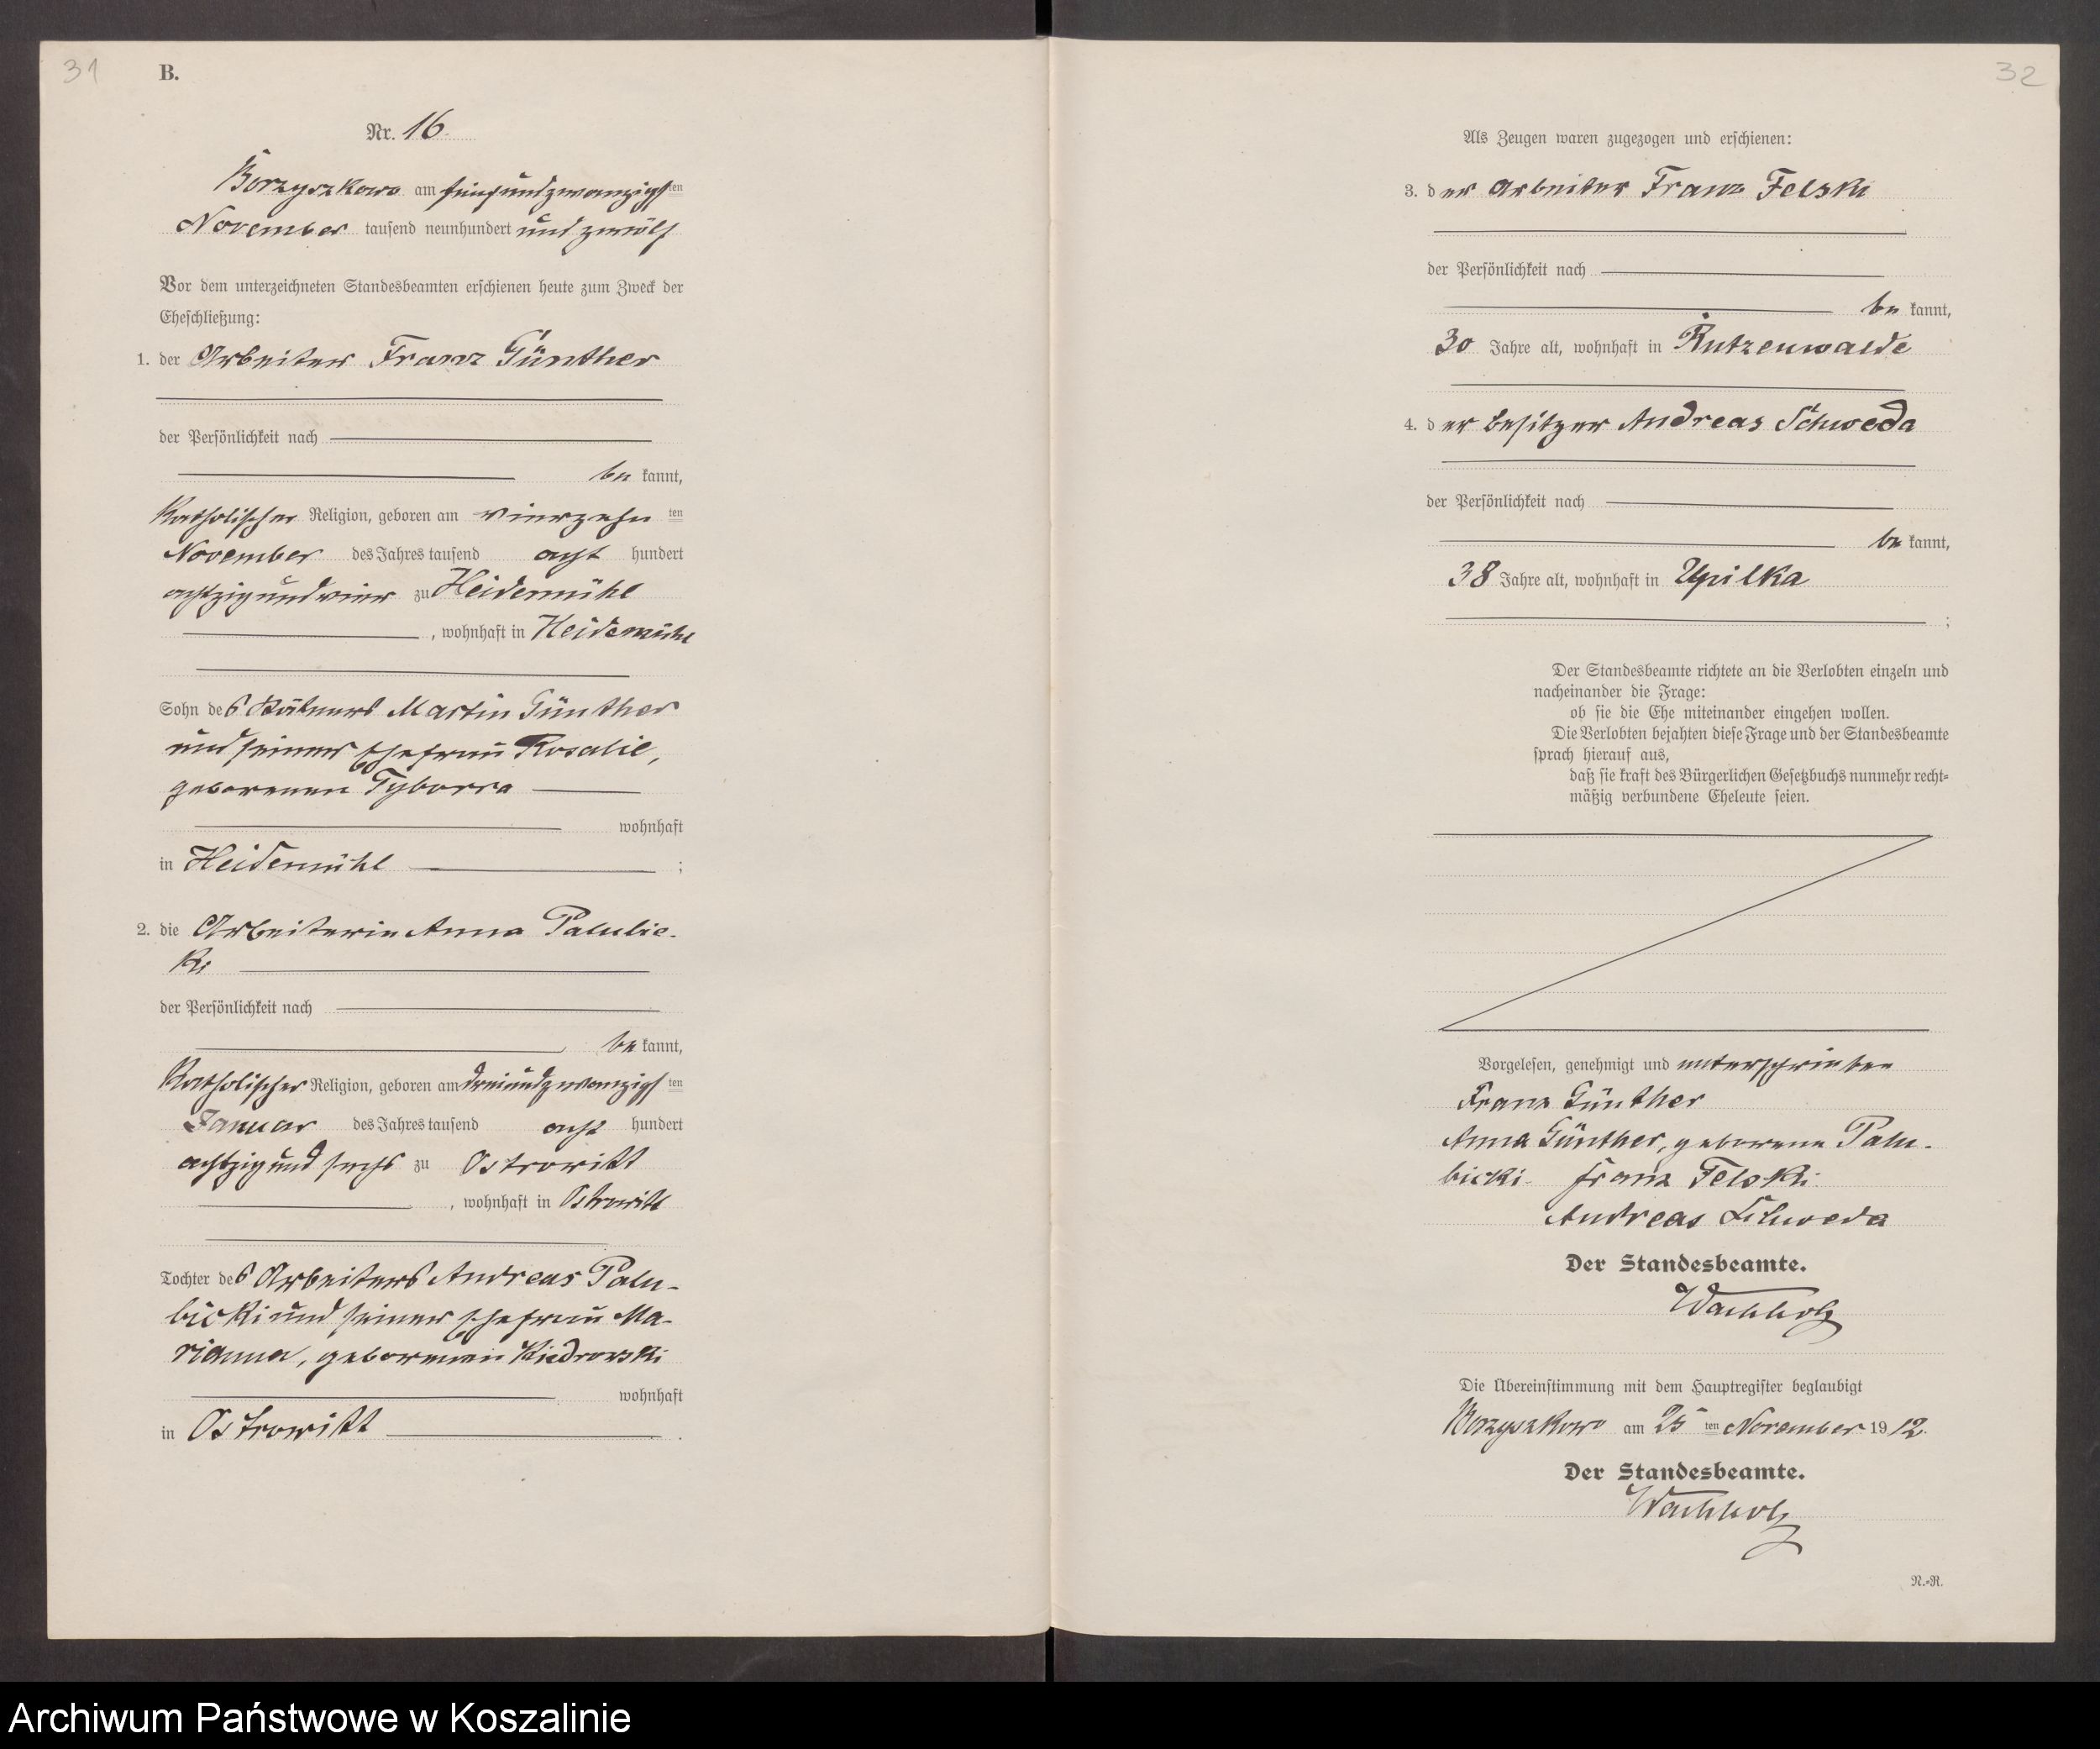 31
B.
Nr. 16.
Borzyszkowo am fünfundzwanzigsten
November tausend neunhundert und zwölf
Vor dem unterzeichneten Standesbeamten erschienen heute zum Zweck der
Eheschließung:
1. der Arbeiter Franz Günther
der Persönlichkeit nach
be kannt,
Katholischer Religion, geboren am vierzehn ten
November des Jahres tausend acht hundert
achtzig und vier zu Heidemühl
, wohnhaft in Heidemühl
Sohn des Kätners Martin Günther
und seiner Ehefrau Rosalie,
geborenen Tyborra
wohnhaft
in Heidemühl ;
2. die Arbeiterin Anna Palubic-
ki
der Persönlichkeit nach
be kannt,
Katholischer Religion, geboren am dreiundzwanzigs ten
Januar des Jahres tausend acht hundert
achtzig und sechs zu Ostrowitt
, wohnhaft in Ostrowitt
Tochter des Arbeiters Andreas Palu-
bicki und seiner Ehefrau Ma-
rianna, geborenen Kiedrowski
wohnhaft
in Ostrowitt .
32
Als Zeugen waren zugezogen und erschienen:
3. der Arbeiter Franz Felski
der Persönlichkeit nach
be kannt,
30 Jahre alt, wohnhaft in Rutzenwalde
4. der Besitzer Andreas Schweda
der Persönlichkeit nach
be kannt,
38 Jahre alt, wohnhaft in Upilka
;
Der Standesbeamte richtete an die Verlobten einzeln und
nacheinander die Frage:
ob sie die Ehe miteinander eingehen wollen.
Die Verlobten bejahten diese Frage und der Standesbeamte
sprach hierauf aus,
daß sie kraft des Bürgerlichen Gesetzbuchs nunmehr recht-
mäßig verbundene Eheleute seien.
Vorgelesen, genehmigt und unterschrieben
Franz Günther
Anna Günther, geborene Palu-
bicki. Franz Felski.
Andreas Schweda
Der Standesbeamte.
Wachholz
Die Übereinstimmung mit dem Hauptregister beglaubigt
Borzyszkowo am 25 ten November 19 12.
Der Standesbeamte.
Wachholz
N.-R.
Archiwum Państwowe w Koszalinie